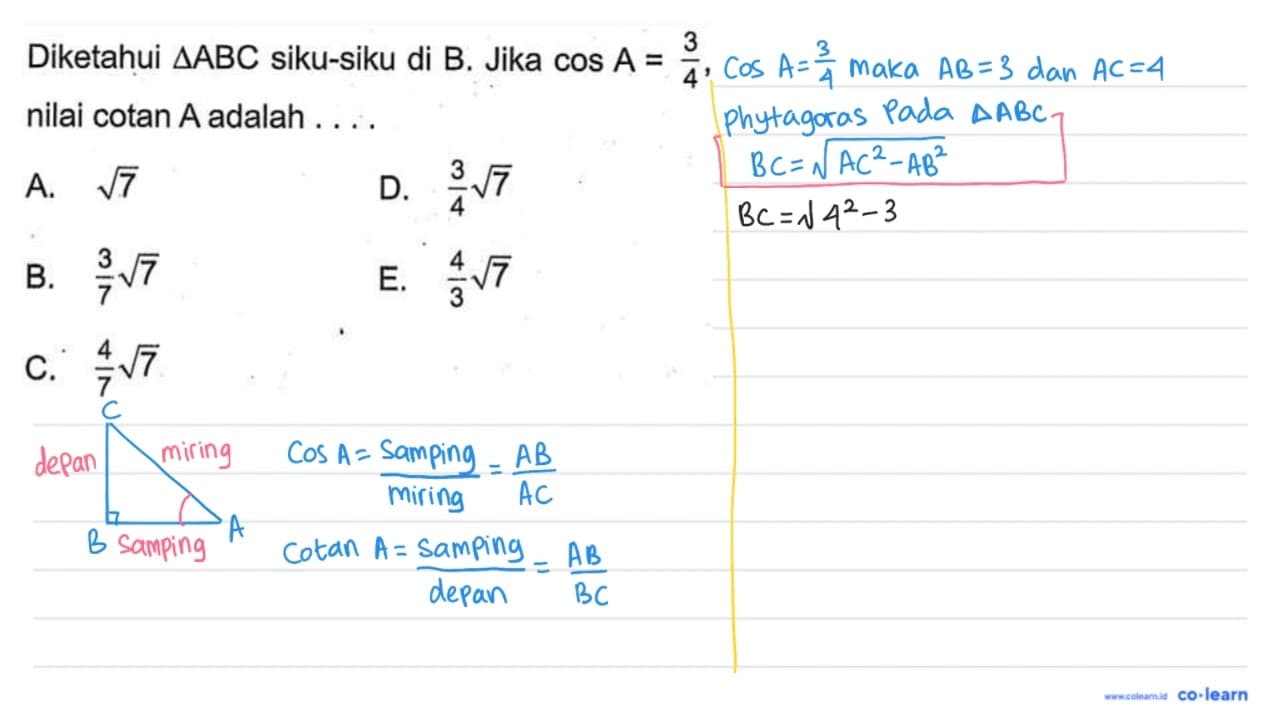 Diketahui ΔABC siku-siku di B. Jika cos A = 3/4,
nilai cotan A adalah . . . .
A. √7
B. 3/7 √7
C. 4/7 √7
D. 3/4 √7
E. 4/3 √7
C
depan
miring
B
samping
A
Cos A = Samping/miring = AB/AC
Cotan A = Samping/depan = AB/BC
Cos A = 3/4 maka AB = 3 dan AC = 4
Phytagoras Pada ΔABC
BC = √AC² - AB²
BC = √ 4² - 3
www.colearn.id co•learn